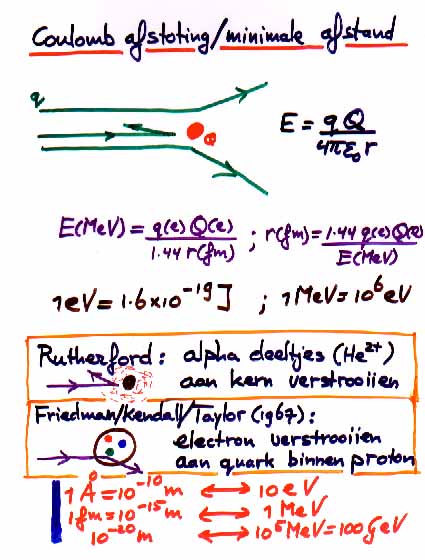 Coulomb afstoting/minimale afstand
q
Q
E = qQ / 4πε₀r
E(MeV) = q(e) Q(e) / 1.44 r(fm) ; r(fm) = 1.44 q(e)Q(e) / E(MeV)
1eV = 1.6×10⁻¹⁹ J ; 1 MeV = 10⁶ eV
Rutherford: alpha deeltjes (He²⁺)
aan kern verstrooiien
Friedman/Kendall/Taylor (1967):
electron verstrooiien
aan quark binnen proton
1 Å = 10⁻¹⁰ m ↔ 10 eV
1 fm = 10⁻¹⁵ m ↔ 1 MeV
10⁻²⁰ m ↔ 10⁵ MeV = 100 GeV